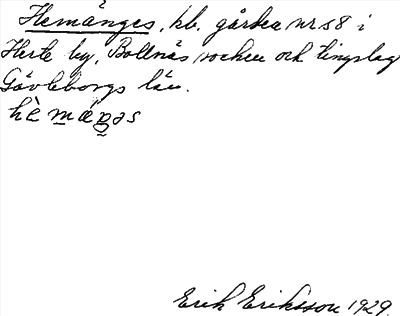 Hemånges, hb. gården nr 58 i
Herte by, Bollnäs socken och tingslag
Gävleborgs län.
hèmáŋəs
Erik Eriksson 1929.